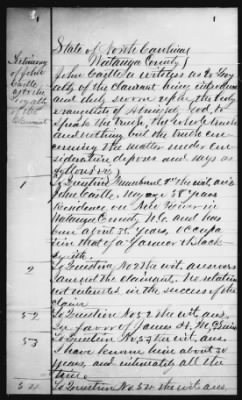 State of North Carolina
Watauga County
Testimony
of John
Castle
as to the
Loyalty
of the
Claimant
John Castle a witness as to Loy
alty of the claimant being introduced
and duly sworn
of Almighty God to
speak the truth, the whole truth
and nothing but the truth con
cerning the matter under con
sideration deposes and says as
follows viz
1
To Question Numbered 1st the wit. ans
John Castle, My age 58 years
Residence on New River in
Watauga County N.C. and has
been about years, occupa
tion that of a Farmer & Black
smith.
2
To Question No 2 the wit. answers
I am not the claimant. No relation
not interested in the success of the
claim
52
To Question No 52 the wit. ans.
In favor of James H.
53
To Question No 53 the wit. ans.
I have known him about
years, and intimately all the
time.
54
To Question No 54 the wit. ans.